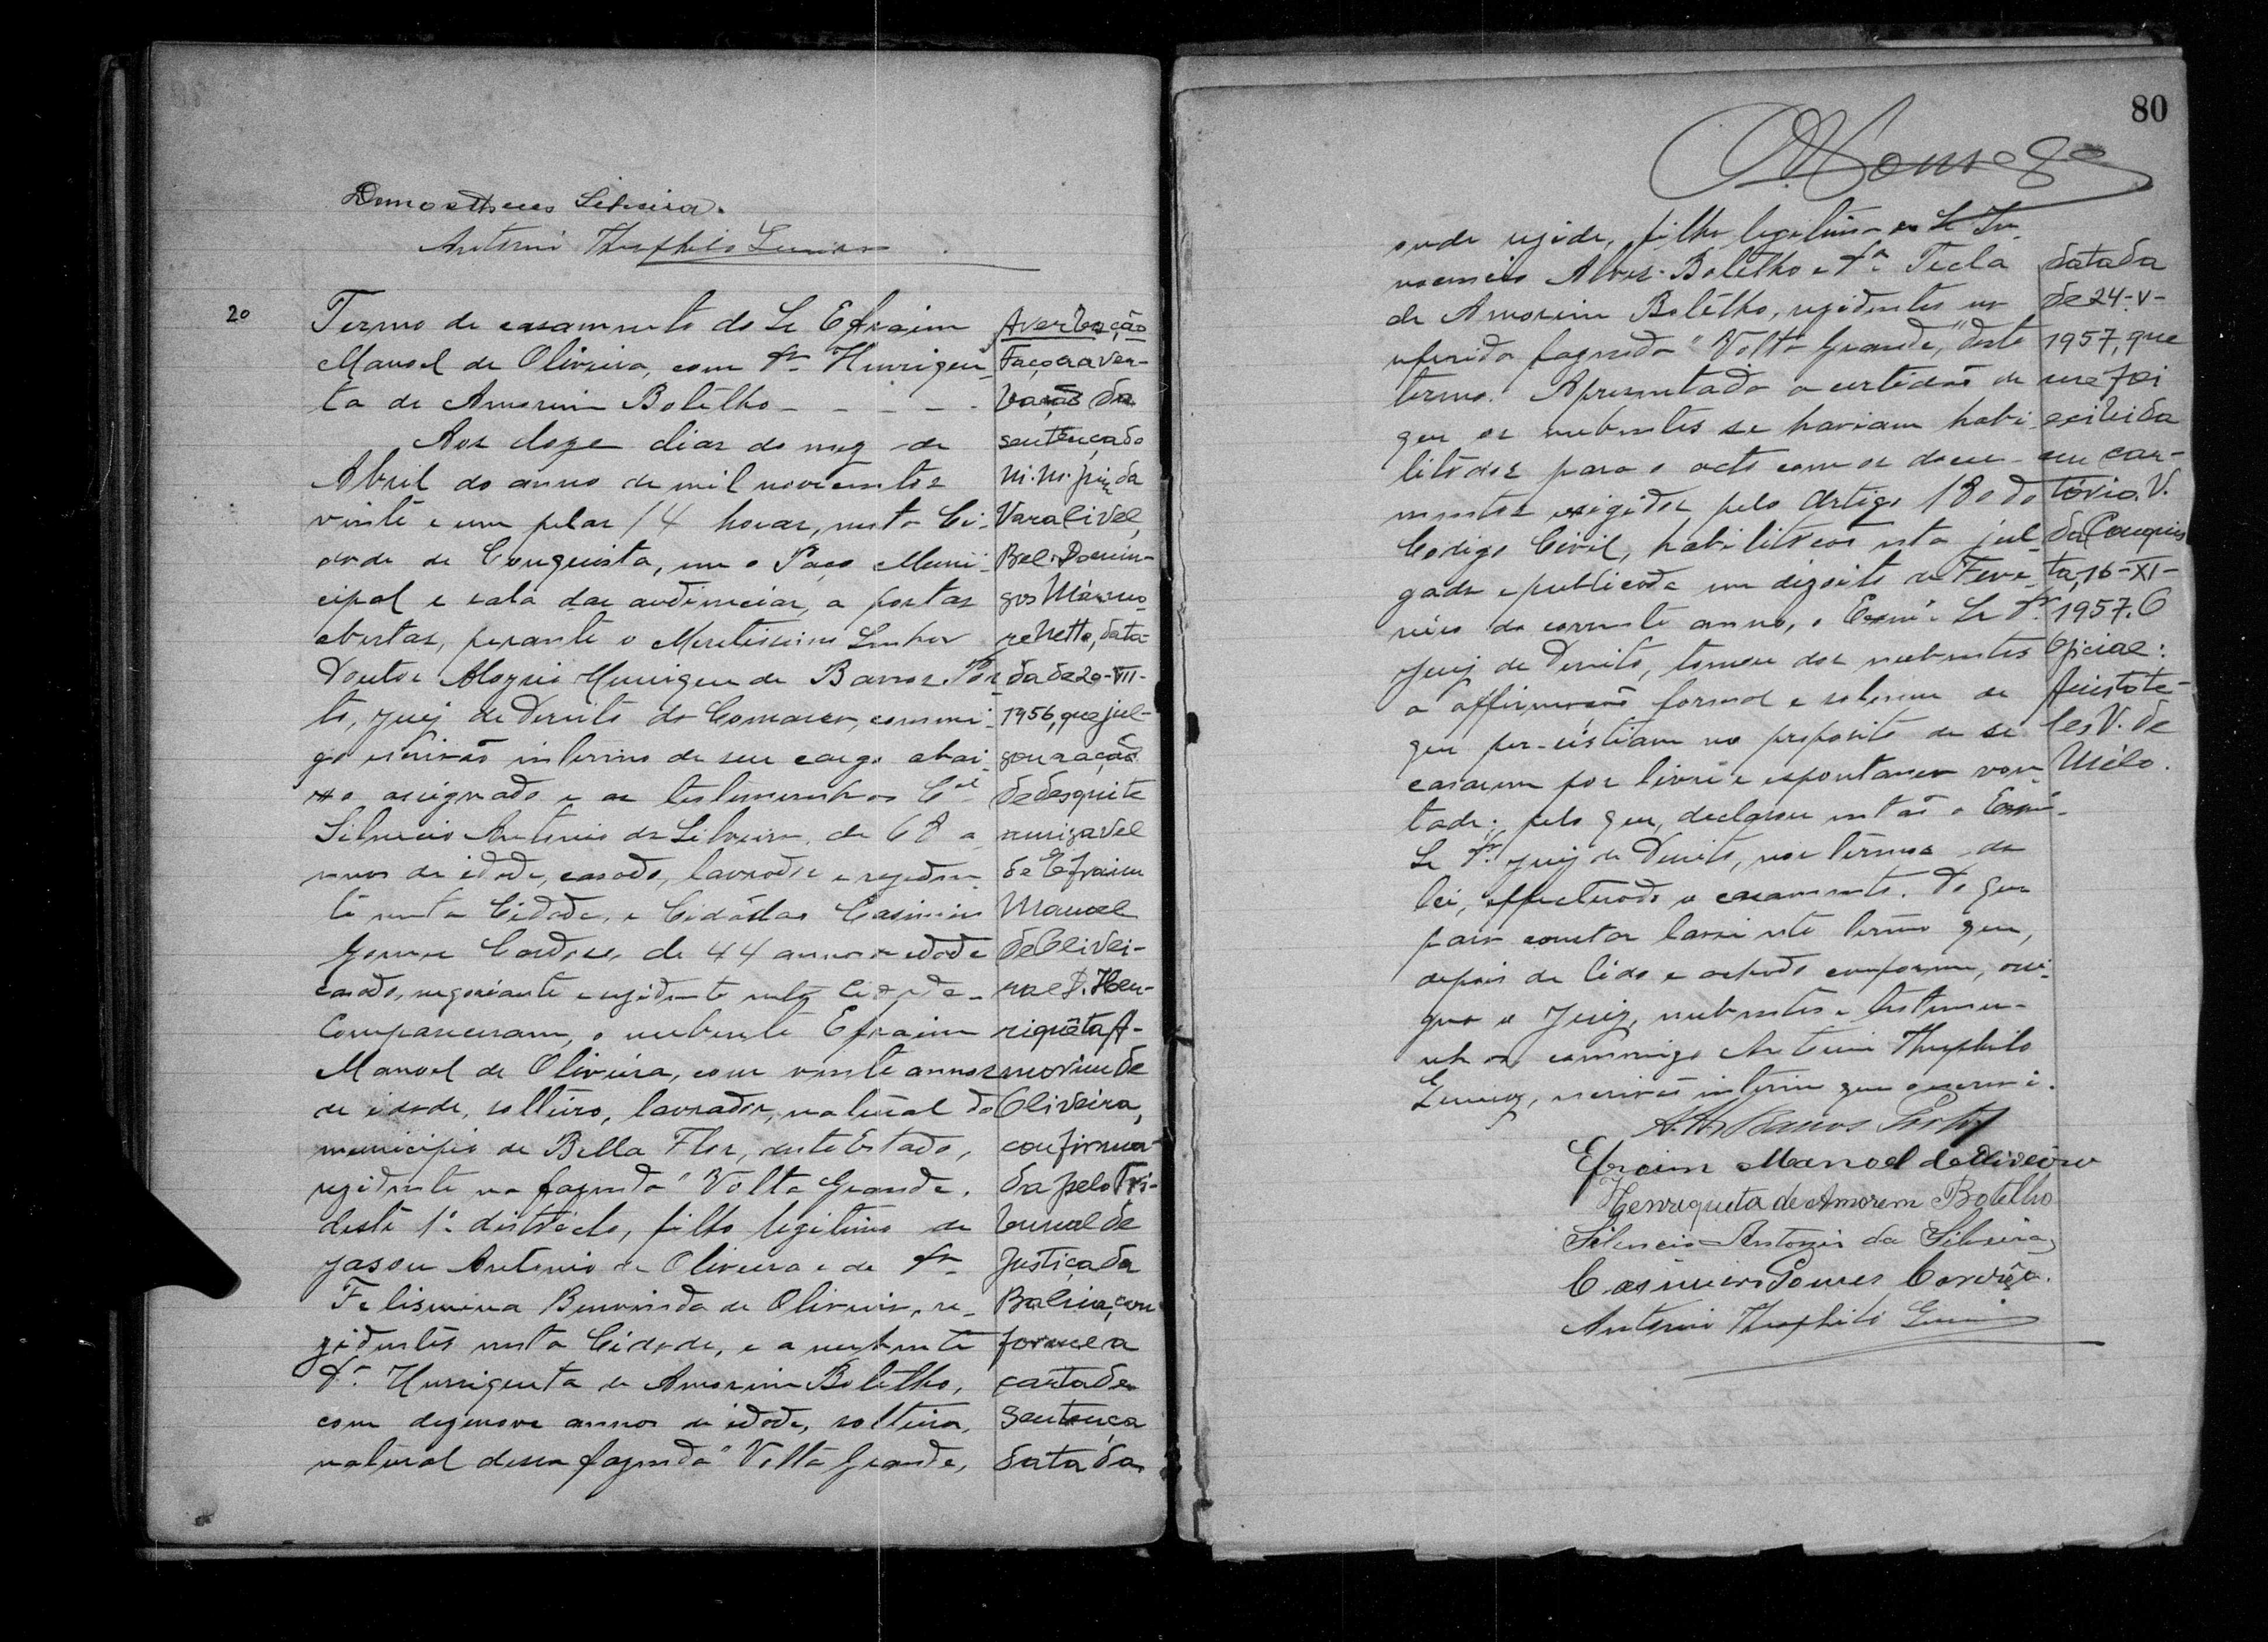 Demosthenes Silveira.
Antonio Theophilo Lemos
20
Termo de casamento do Sr Efraim
Manoel de Oliveira, com Da Henrique
ta de Amorim Botelho - - - - -
Aos doze dias do mez de
Abril do anno de mil novecentos
vinte e um pelas 14 horas, nesta Ci-
dade de Conquista, em o Paço Muni-
cipal e sala das audiencias, a portas
abertas, perante o Meritissimo Senhor
Doutor Aloysio Henrique de Barros Por-
to, Juiz de Direito da Comarca, commi-
go escrivão interino de seu cargo abai-
xo assignado e as testemunhas Cel
Silvencio Antonio da Silveira, de 68 a
nnos de idade, casado, lavrador e residen
te nesta Cidade, e Cidadão Casimiro
Gomes Cardoso, de 44 annos de edade
casado, negociante e residente nesta Cidade -
Compareceram, o nubente Efraim
Manoel de Oliveira, com vinte annos
de idade, solteiro, lavrador, natural do
municipio de Bella Flor, deste Estado,
residente na fazenda "Volta Grande,
deste 1º districto, filho legitimo de
Jason Antonio de Oliveira e de Da
Felismina Bemvinda de Oliveira, re-
zidentes nesta Cidade, e a nubente
Da Henriqueta de Amorim Botelho,
com dezenove annos de idade, solteira,
natural dessa fazenda "Volta Grande,
Averbação
Faço a aver-
bação da
sentença do
M. M. Juiz da
Vara Civel,
Bel. Domin-
gos Mármo-
re Netto, data-
da de 20-VII-
1956, que jul-
gou a ação
de desquite
amigavel
de Efraim
Manoel
de Olivei-
ra e D. Hen-
riquêta A-
morim de
Oliveira,
confirma-
da pelo Tri-
bunal de
Justiça da
Bahia, con
forme a
carta de
sentença
datada
80
onde reside, filha legitima do Sr In-
nocencio Alves Botelho e Da Tecla
de Amorim Botelho, residentes na
referida fazenda "Volta Grande," deste
termo. Apresentada a certidão de
que os nubentes se haviam habi-
litados para o acto com os docu-
mentos exigidos pelo Artigo 180 do
Codigo Civil, habilitação esta jul-
gada e publicada em dezoito de Feve-
reiro do corrente anno, o Exmº Sr Dr
Juiz de Direito, tomou dos nubentes
a affirmação formal e solemne de
que persistiam no proposito de se
casarem por livre e espontanea von
tade; pelo que, declarou então o Exmº
Sr Dr Juiz de Direito, nos termos da
lei, effectuado o casamento. Do que
para constar lavrei este termo que,
depois de lido e achado conforme, assi-
gna o Juiz, nubentes e testemu-
nhas commigo Antonio Theophilo
Lemos, escrivão interino que o escrevi.
A. H. Barros Porto
Efraim Manoel de Oliveira
Henriqueta de Amorem Botelho
Silvencio Antonio da Silveira
Casimiro Gomes Cardôso.
Antonio Theophilo Lemos
datada
de 24-V-
1957, que
me foi
exibida
em car-
tório. V.
da Conquis
ta, 16-XI-
1957. O
Oficial:
Aristote-
les V. de
Mélo.